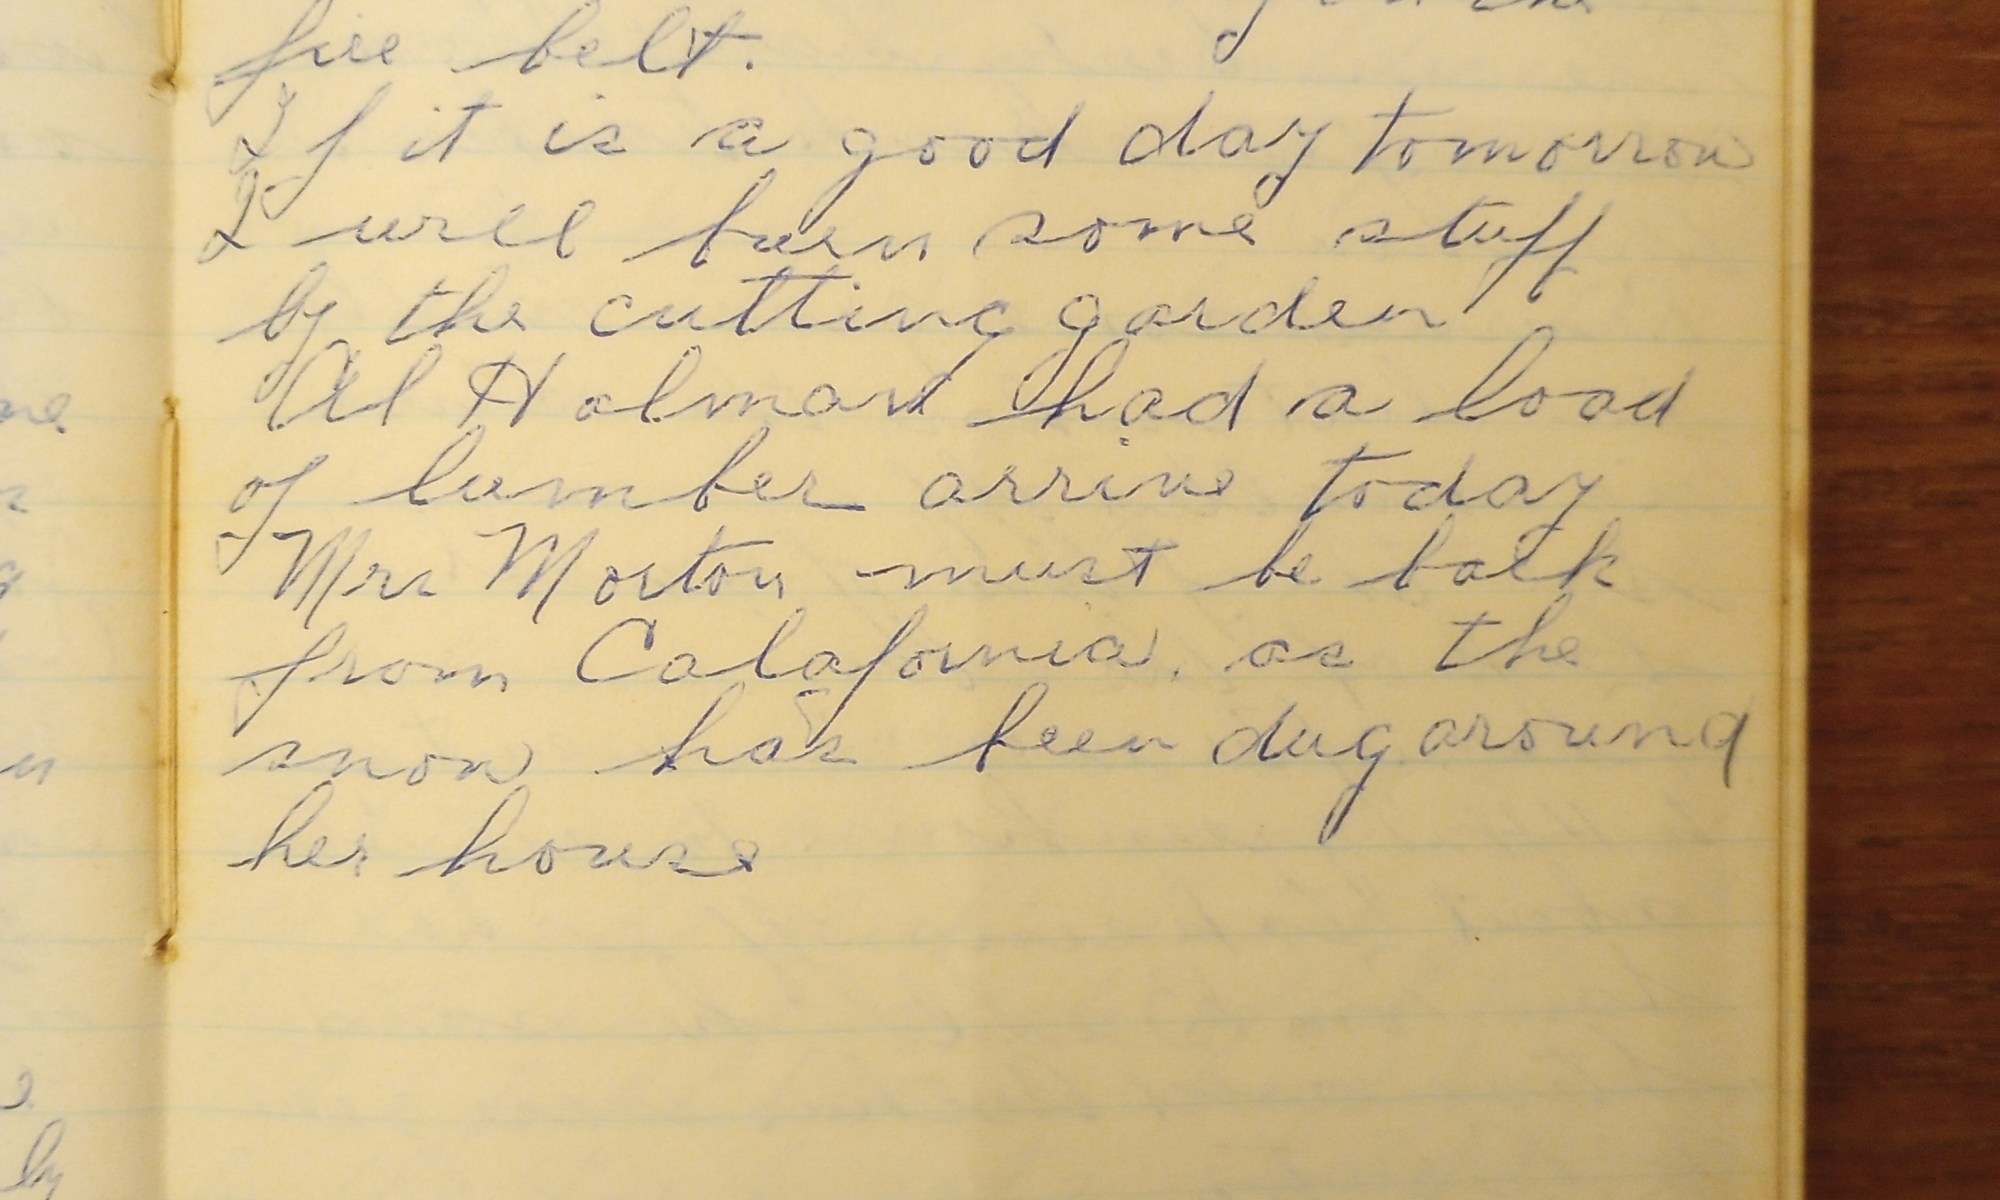 fire belt.
If it is a good day tomorrow
I will burn some stuff
by the cutting garden
Al Holman had a load
of lumber arrive today
Mrs Morton must be back
from Calafornia. as the
snow has been dug around
her house